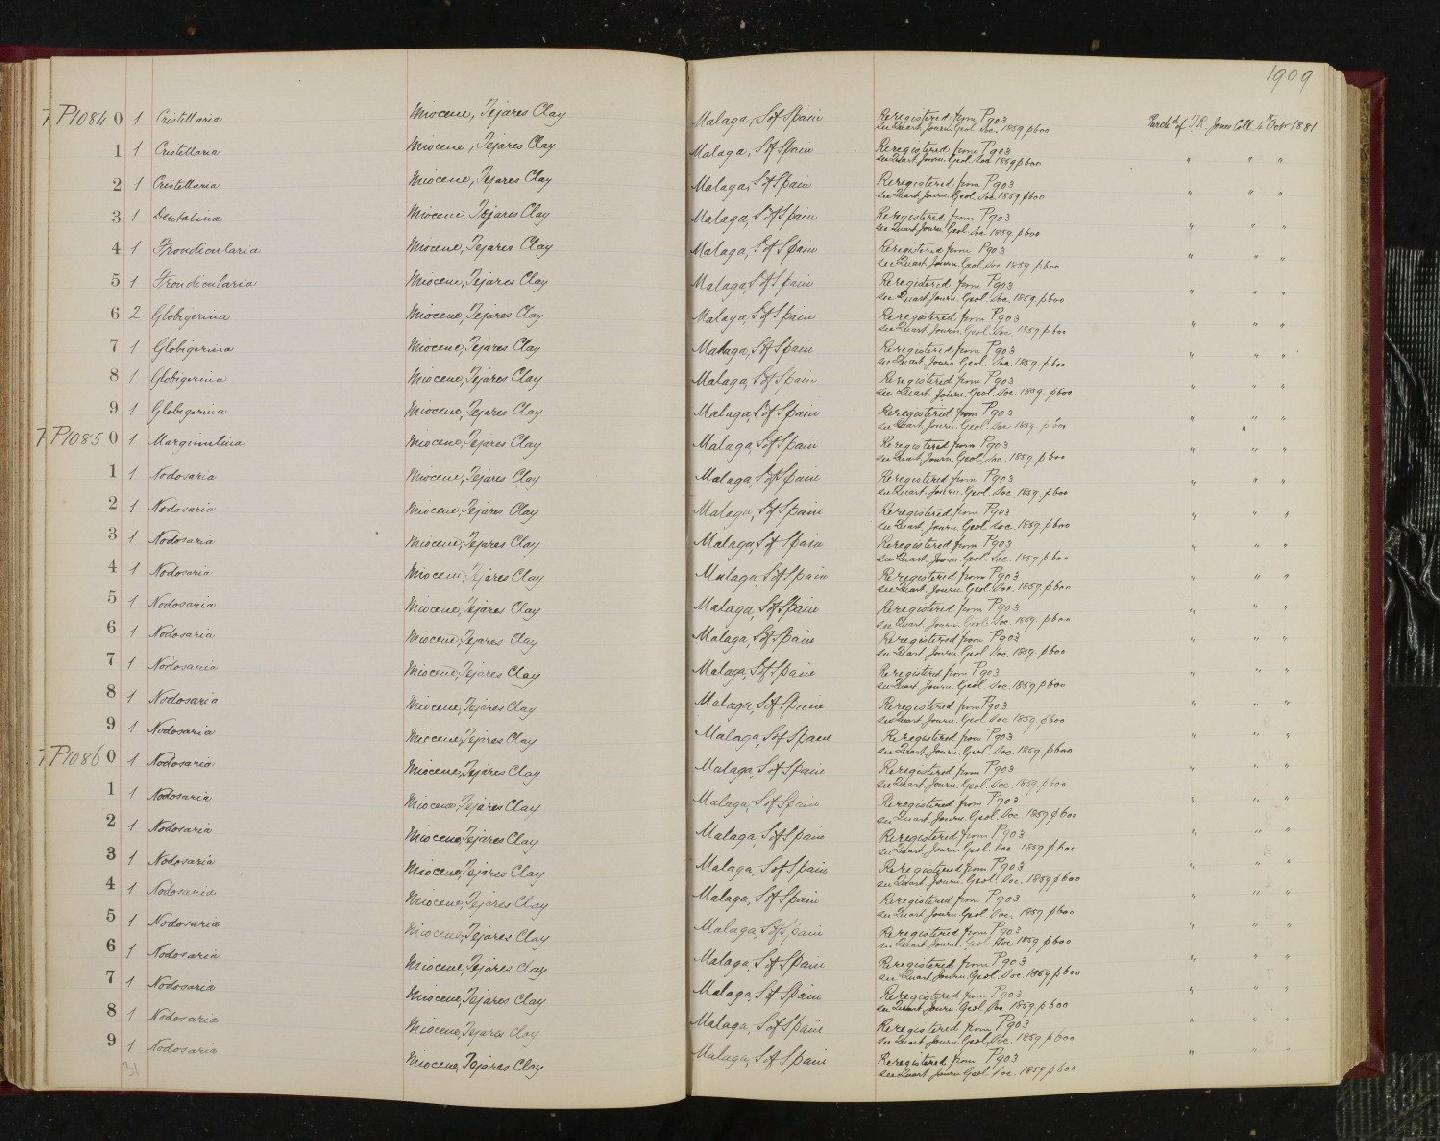 1909
P10840 1 Cristellaria Miocene, Tejares Clay Malaga, S of Spain Reregistered from P903 Purchd of T.R. Jones Coll. 4th Oct 1881
see Quart. Journ. Geol. Soc. 1859 p600
1 1 Cristellaria Miocene, Tejares Clay Malaga, S of Spain Reregistered from P903 " " "
see Quart. Journ. Geol. Soc 1859 p600
2 1 Cristellaria Miocene, Tejares Clay Malaga, S of Spain Reregistered from P903 " " "
see Quart. Journ. Geol. Soc. 1859 p600
3 1 Dentalina Miocene, Tejares Clay Malaga, S of Spain Reregistered from P903 " " "
see Quart. Journ. Geol. Soc 1859. p600
4 1 Frondicularia Miocene, Tejares Clay Malaga, S of Spain Reregistered from P903 " " "
see Quart. Journ. Geol. Soc 1859. p600
5 1 Frondicularia Miocene, Tejares Clay Malaga, S of Spain Reregistered from P903 " " "
see Quart. Journ. Geol. Soc. 1859 p600
6 2 Globigerina Miocene, Tejares Clay Malaga, S of Spain Reregistered from P903 " " "
see Quart. Journ. Geol. Soc. 1859 p600
7 1 Globigerina Miocene, Tejares Clay Malaga, S of Spain Reregistered from P903 " " "
see Quart. Journ. Geol. Soc. 1859. p600
8 1 Globigerina Miocene, Tejares Clay Malaga, S of Spain Reregistered from P903 " " "
see Quart. Journ. Geol. Soc. 1859. p600
9 1 Globigerina Miocene, Tejares Clay Malaga, S of Spain Reregistered from P903 " " "
see Quart. Journ. Geol. Soc 1859. p600
P10850 1 Marginulina Miocene, Tejares Clay Malaga, S of Spain Reregistered from P903 " " "
see Quart. Journ. Geol. Soc. 1859 p600
1 1 Nodosaria Miocene, Tejares Clay Malaga, S of Spain Reregistered from P903 " " "
see Quart. Journ. Geol. Soc 1859. p600
2 1 Nodosaria Miocene, Tejares Clay Malaga, S of Spain Reregistered from P903 " " "
see Quart. Journ. Geol. Soc. 1859 p600
3 1 Nodosaria Miocene, Tejares Clay Malaga, S of Spain Reregistered from P903 " " "
see Quart. Journ. Geol. Soc. 1859 p600
4 1 Nodosaria Miocene, Tejares Clay Malaga, S of Spain Reregistered from P903 " " "
see Quart. Journ. Geol. Soc. 1859 p600
5 1 Nodosaria Miocene, Tejares Clay Malaga, S of Spain Reregistered from P903 " " "
see Quart. Journ. Geol. Soc. 1859 p600
6 1 Nodosaria Miocene, Tejares Clay Malaga, S of Spain Reregistered from P903 " " "
see Quart. Journ. Geol. Soc. 1859. p600
7 1 Nodosaria Miocene, Tejares Clay Malaga, S of Spain Reregistered from P903 " " "
see Quart. Journ. Geol. Soc. 1859 p600
8 1 Nodosaria Miocene, Tejares Clay Malaga, S of Spain Reregistered from P903 " " "
see Quart. Journ. Geol. Soc 1859 p600
9 1 Nodosaria Miocene, Tejares Clay Malaga, S of Spain Reregistered from P903 " " "
see Quart. Journ. Geol. Soc. 1859 p600
P10860 1 Nodosaria Miocene, Tejares Clay Malaga, S of Spain Reregistered from P903 " " "
see Quart. Journ. Geol. Soc 1859 p600
1 1 Nodosaria Miocene, Tejares Clay Malaga, S of Spain Reregistered from P903 " " "
see Quart. Journ. Geol. Soc. 1859 p600
2 1 Nodosaria Miocene, Tejares Clay Malaga, S of Spain Reregistered from P903 " " "
see Quart. Journ. Geol. Soc 1859 p600
3 1 Nodosaria Miocene, Tejares Clay Malaga, S of Spain Reregistered from P903 " " "
see Quart. Journ. Geol. Soc. 1859 p600
4 1 Nodosaria Miocene, Tejares Clay Malaga, S of Spain Reregistered from P903 " " "
see Quart. Journ. Geol. Soc. 1859 p600
5 1 Nodosaria Miocene, Tejares Clay Malaga, S of Spain Reregistered from P903 " " "
see Quart. Journ. Geol. Soc 1859 p600
6 1 Nodosaria Miocene, Tejares Clay Malaga, S of Spain Reregistered from P903 " " "
see Quart. Journ. Geol. Soc. 1859 p600
7 1 Nodosaria Miocene, Tejares Clay Malaga, S of Spain Reregistered from P903 " " "
see Quart. Journ. Geol. Soc 1859. p600
8 1 Nodosaria Miocene, Tejares Clay Malaga, S of Spain Reregistered from P903 " " "
see Quart. Journ. Geol. Soc. 1859. p600
9 1 Nodosaria Miocene, Tejares Clay Malaga, S of Spain Reregistered from P903 " " "
see Quart. Journ. Geol. Soc. 1859 p600
31